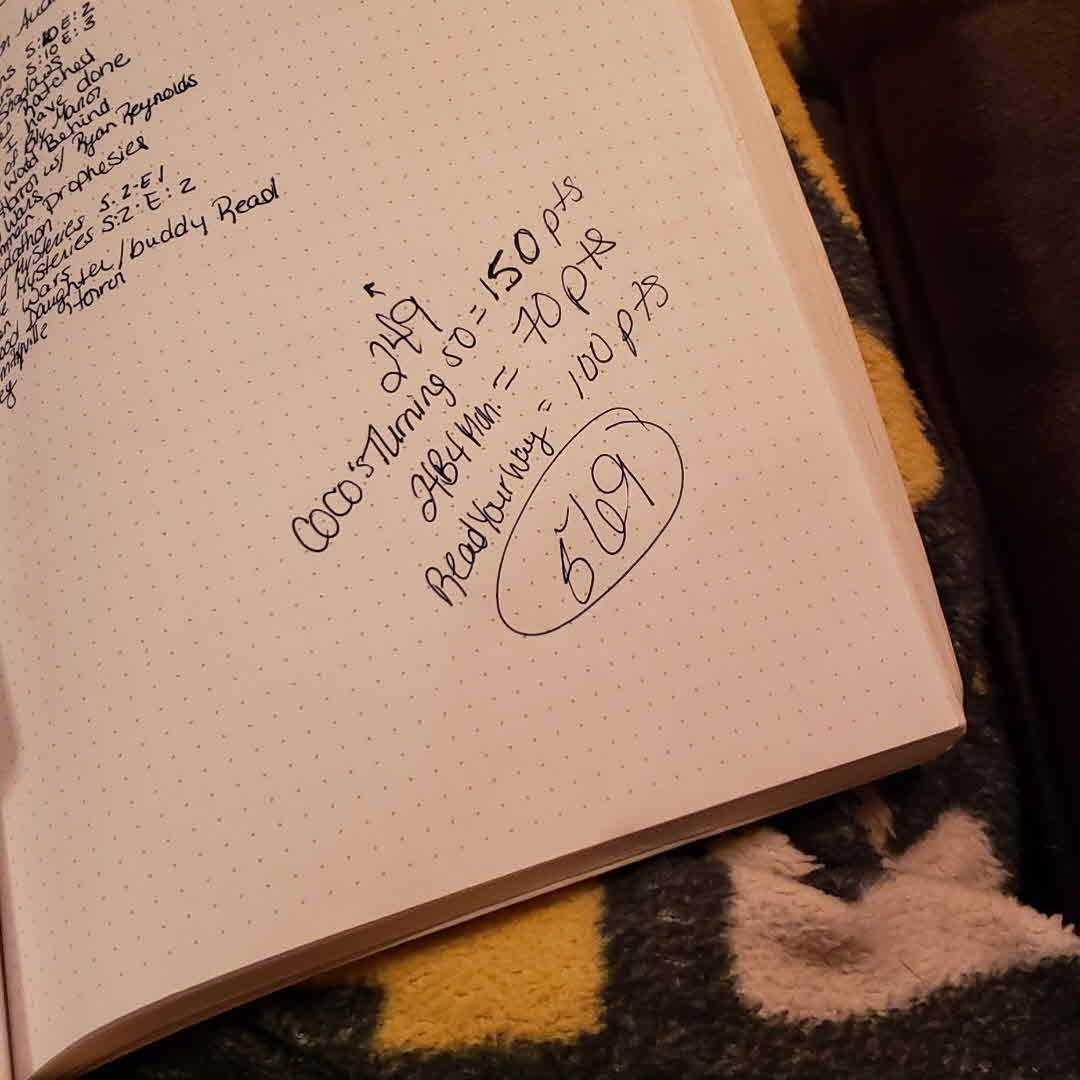 S:10 E:2
S:10 E:3
Shadows
Ratched
I have done
of Bly Manor
Word Behind
Horror w/ Ryan Reynolds
Wars
Prophesies
Mysteries S:2-E1
Mysteries S:2:E:2
Wars
Daughter/buddy Read
Horror
249
COCO's Turning 50 = 150 pts
24B4 Mon. = 70 pts
Read Your Way = 100 pts
569